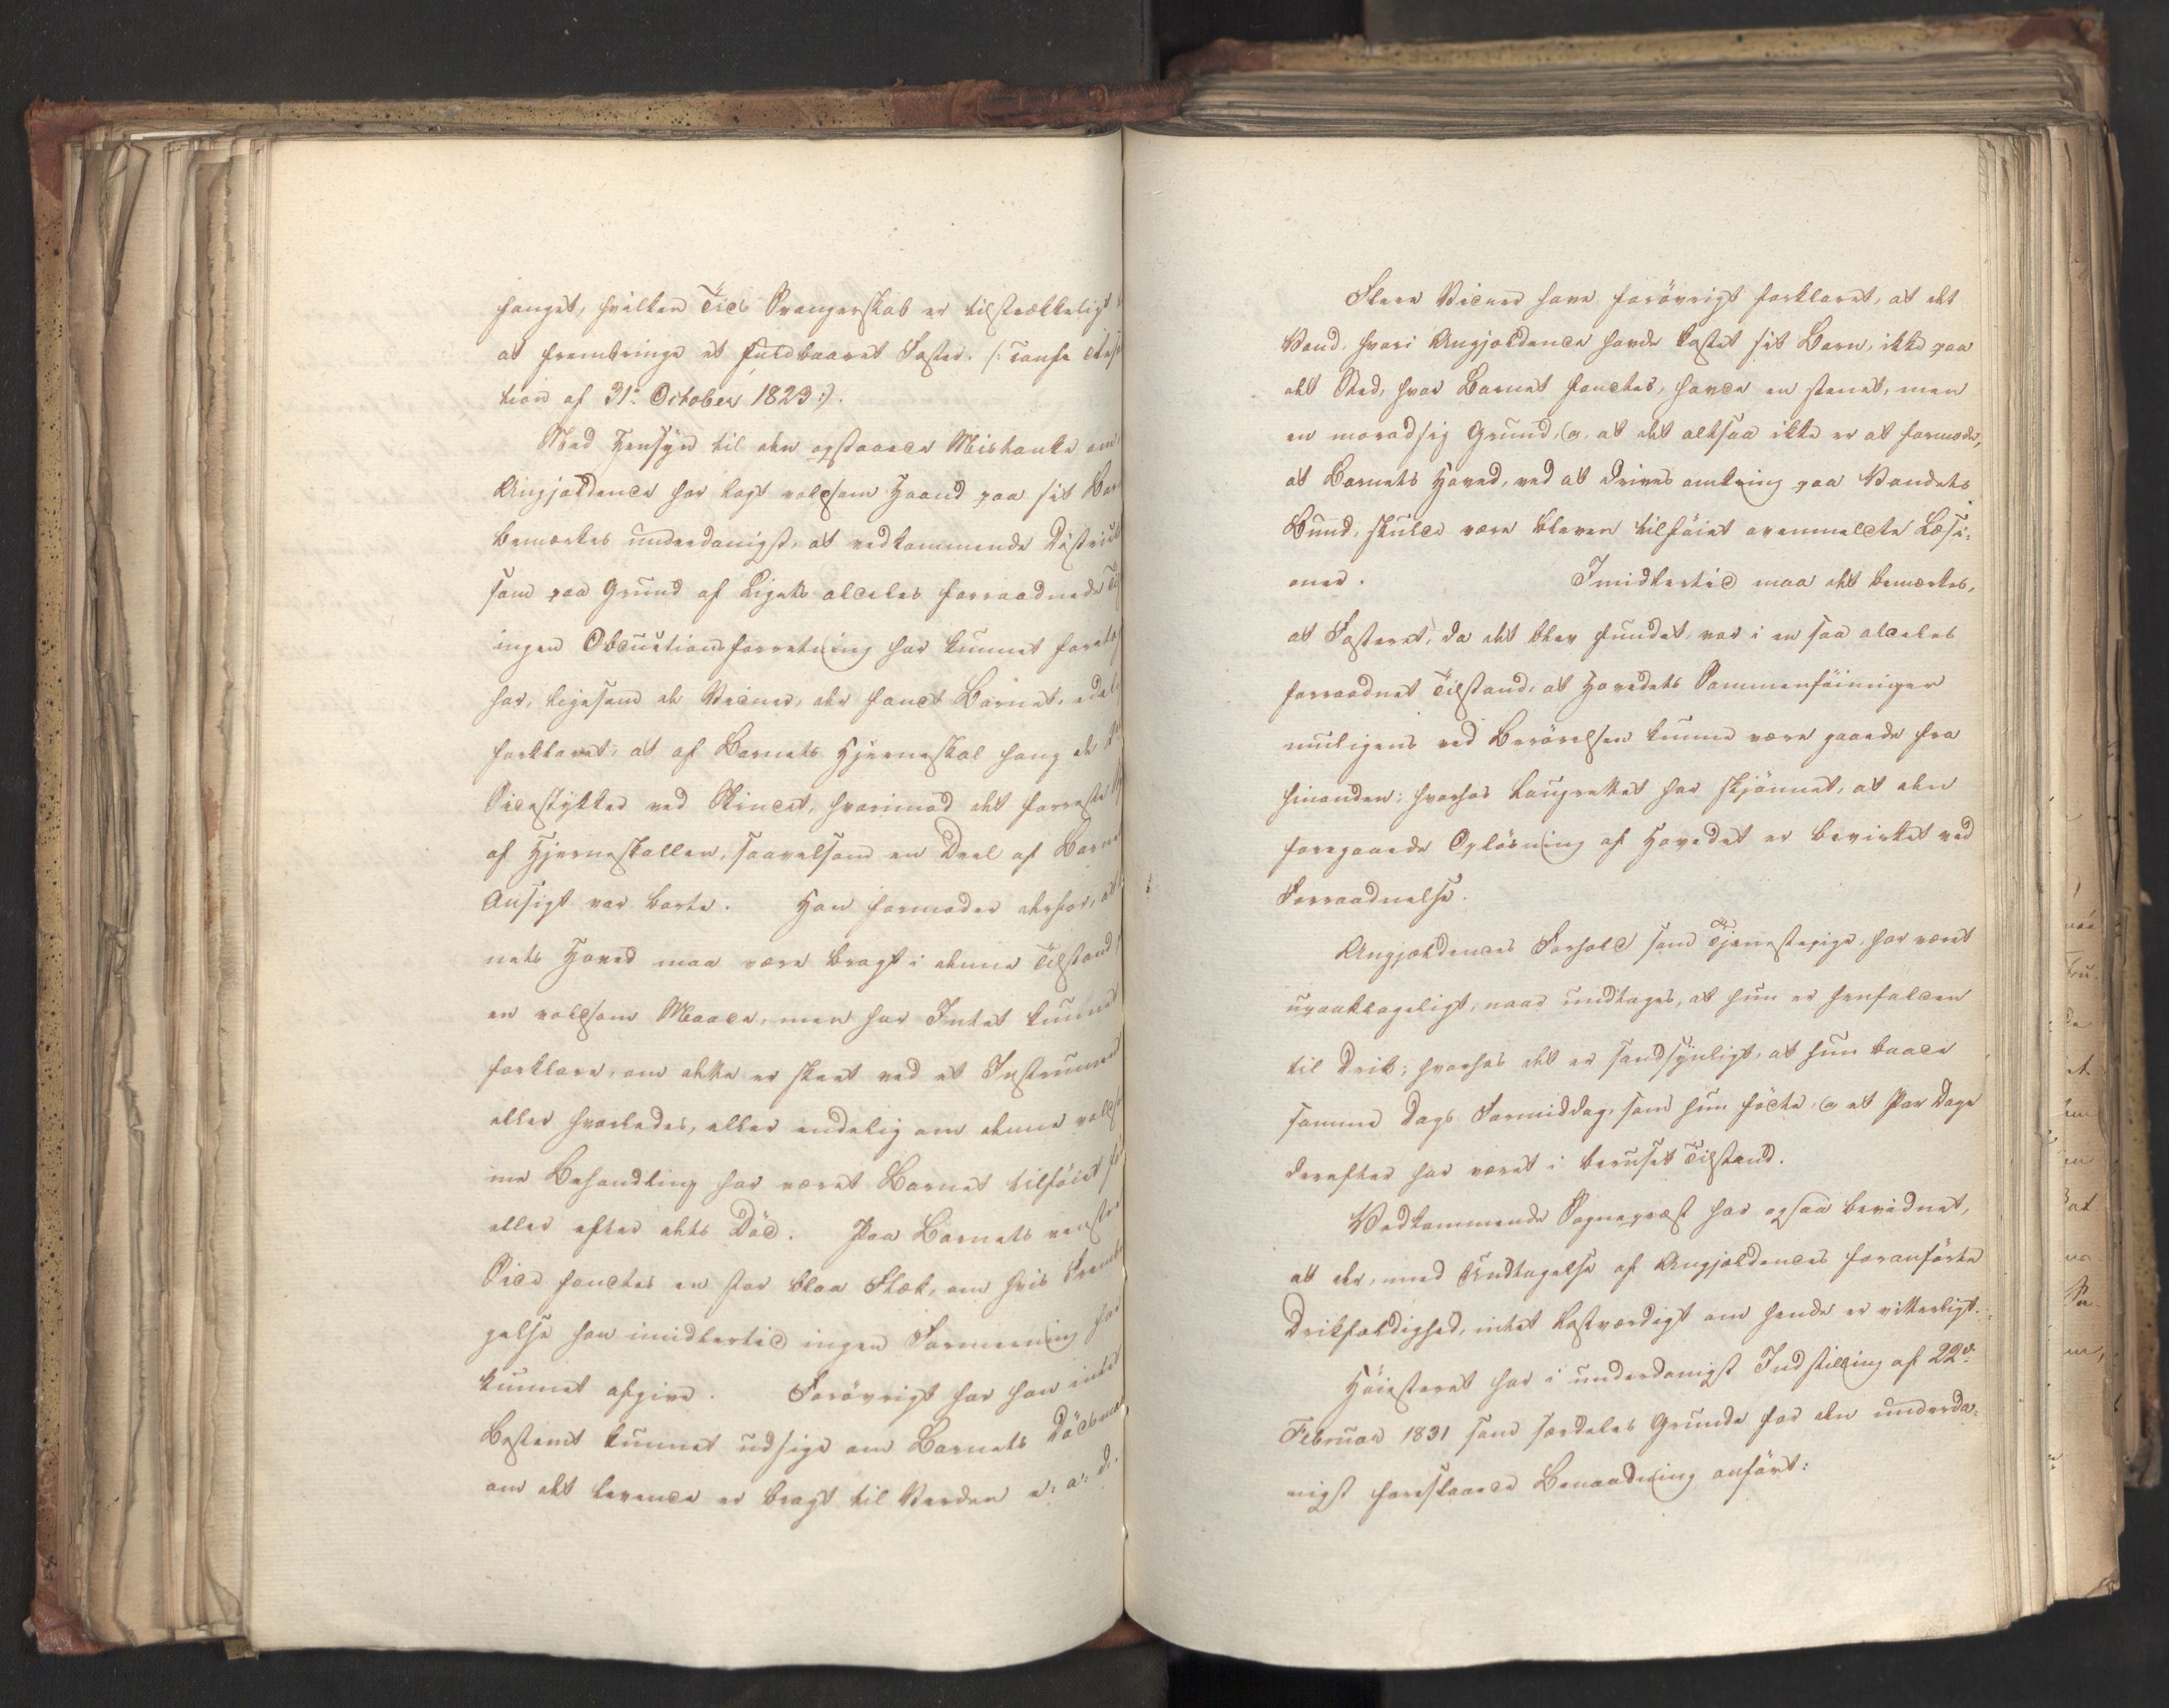 hanget, hvilken Tids Svangerskab er tilstrækkeligt
at frembringe et fuldbaaret Foster. (: confr
tion af 31. October 1823:).
Med Hensyn til den opstaaede Mistanke om
Angjældende har lagt voldsom Haand paa sit
bemærkes underdanigst, at vedkommende District
som paa Grund af Ligets aldeles forraadnede
ingen Obductionsforretning har kunnet
har, ligesom de Vidner, der fandt Barnet,
forklaret, at af Barnets Hjerneskal hang de
Sidestykker ved Skindet, hvorimod det forreste
af Hjerneskallen, saavelsom en Deel af
Ansigt var borte. Han formoder derfor, at
nets Hoved maa være bragt i denne Tilstand
en voldsom Maade, men har Intet kunnet
forklare, om dette er skeet ved et
eller hvorledes, eller endelig om denne
me Behandling har været Barnet tilføiet
eller efter dets Død. Paa Barnets venstre
Side fandtes en stor blaa Flæk, om hvis
gelse han imidlertid ingen Formening har
kunnet afgive. Forøvrigt har han intet
bestemt kunnet udsige om Barnets
om det levende er bragt til Verden e: a: d:.
Flere Vidner have forøvrigt forklaret, at det
Vand, hvori Angjældende havde kastet sit Barn, ikke paa
det Sted, hvor Barnet fandtes, havde en stenet, men
en moradsig Grund, og at det altsaa ikke er at formode,
at Barnets Hoved, ved at drives omkring paa Vandets
Bund, skulde være bleven tilføiet ovenmeldte Læsi-
oner. Imidlertid maa det bemærkes,
at Fosteret, da det blev fundet, var i en saa aldeles
forraadnet Tilstand, at Hovedets Sammenføininger
muligens ved Berørelsen kunne være gaaede fra
hinanden; hvorhos Laugrettet har skjønnet, at den
foregaaede Opløsning af Hovedet er bevirket ved
Forraadnelse.
Angjældendes Forhold som Tjenestepige, har været
upaaklageligt, naar undtages, at hun er henfalden
til Drik; hvorhos det er sandsynligt, at hun baade
samme Dags Formiddag, som hun fødte, og et Par Dage
derefter har været i beruset Tilstand.
Vedkommende Sognepræst har ogsaa bevidnet,
at der, med Undtagelse af Angjældendes foranførte
Drikfældighed, intet lastværdigt om hende er vitterligt.
Høiesteret har i underdanigst Indstilling af 22de
Februar 1831 som særdeles Grunde for den underda-
nigst foreslaaede Benaadning anført: